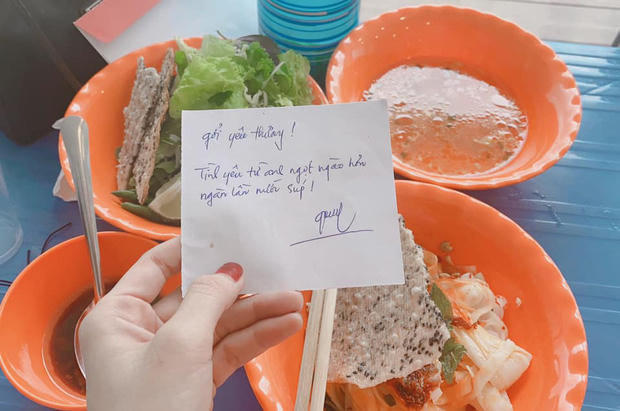 gởi yêu thương !
Tình yêu từ anh ngọt ngào hơn
ngàn lần nước súp !